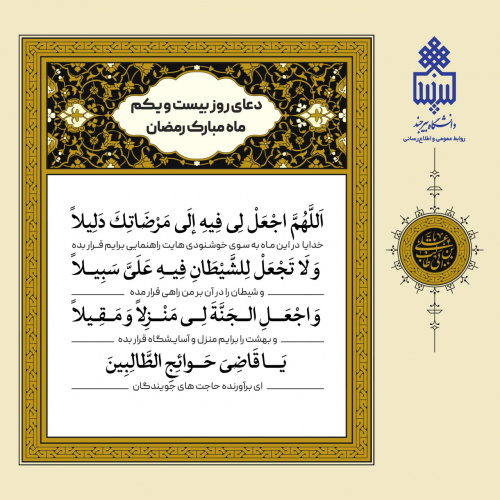 دعای روز بیست و یکم
ماه مبارک رمضان
اَللَّهُمَّ اجْعَلْ لِی فِیهِ إِلَى مَرْضَاتِكَ دَلِیلاً
خدایا در این ماه به سوی خوشنودی هایت راهنمایی برایم قرار بده
وَ لَا تَجْعَلْ لِلشَّیْطَانِ فِیهِ عَلَیَّ سَبِیلاً
و شیطان را در آن بر من راهی قرار مده
وَ اجْعَلِ الْجَنَّةَ لِی مَنْزِلاً وَ مَقِیلاً
و بهشت را برایم منزل و آسایشگاه قرار بده
یَا قَاضِیَ حَوَائِجِ الطَّالِبِینَ
ای برآورنده حاجت های جویندگان
دانشگاه بیرجند
روابط عمومی و اطلاع‌رسانی